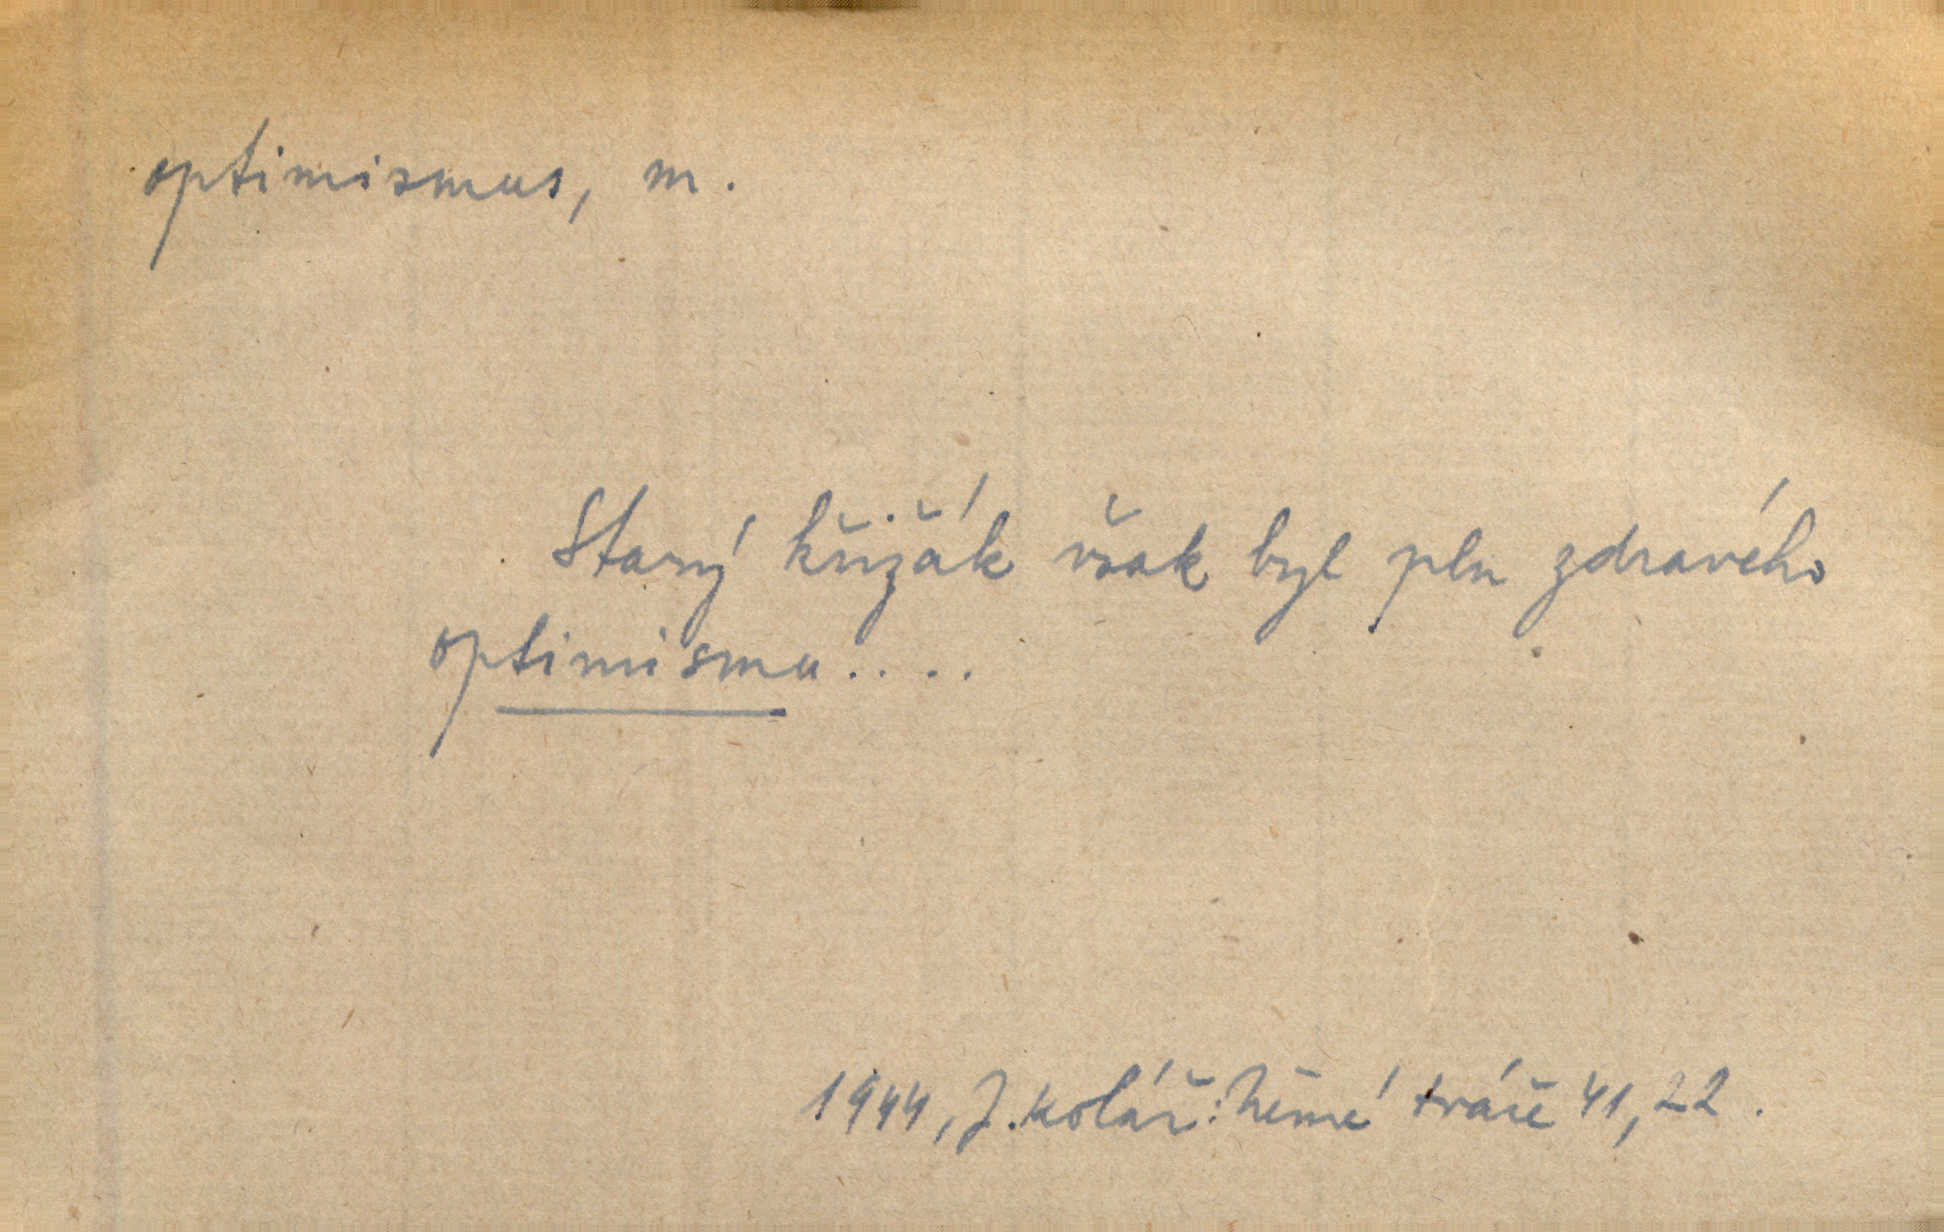 optimismus, m.
Starý křižák však byl pln zdravého
optimismu....
1944, J. Kolář: Němé tváře 41, 22.